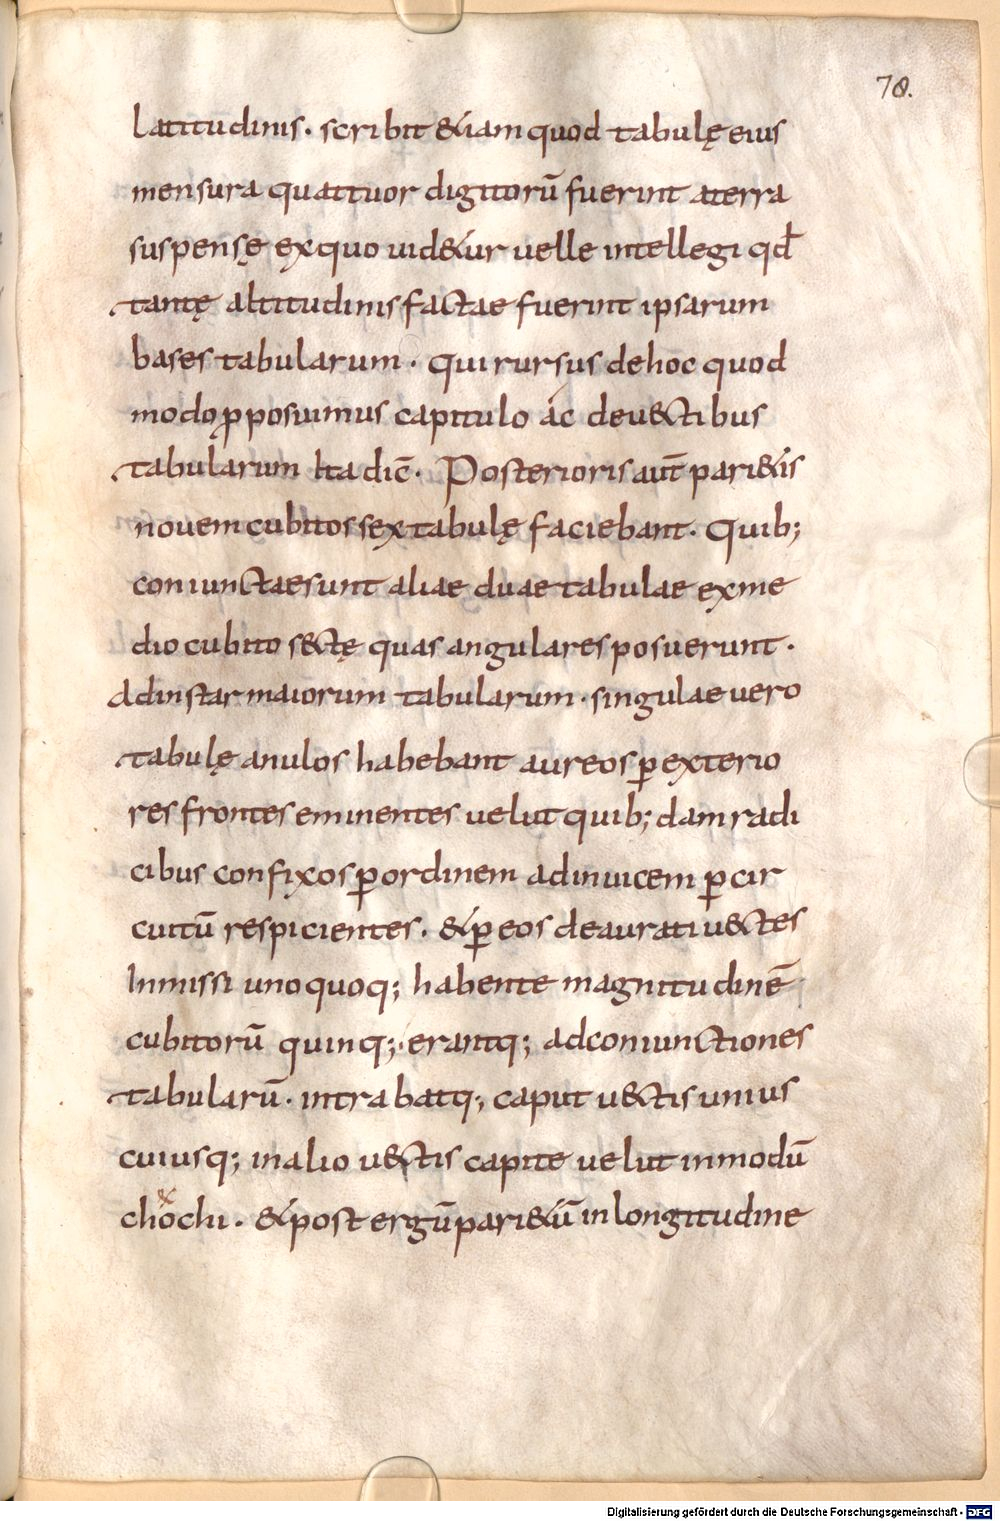 78.
latitudinis. scribit &iam quod tabulę eius
mensura quattuor digitorū fuerint aterra
suspensę exquo uid&ur uelle intellegi qđ
tantę altitudinis factae fuerint ipsarum
bases tabularum. Qui rursus dehoc quod
modo ꝓposuimus capitulo ác deuectibus
tabularum Ita dic̄. Posterioris aut̄ pari&is
novem cubitos sex tabulę faciebant. Quib;
coniunctae sunt aliae duae tabulae exme
dio cubito sectę quas angulares posuerunt.
Adinstar maiorum tabularum. singulae uero
tabulę anulos habebant aureos ꝑ exterio
res frontes eminentes uelut quib;dam radi
cibus confixos ꝑ ordinem adinuicem ꝑ cir
cuitū respicientes. & ꝑ eos deaurati u&ctes
Inmissi uno quoq; habente magnitudinē
cubitorū quinq; erantq; adconiunctiones
tabularū. intrabatq; caput u&ctis unius
cuiusq; inalio u&ctis capite uelut inmodū
chochi. & post ergū pari&ū inlongitudine
Digitalisierung gefördert durch die Deutsche Forschungsgemeinschaft - DFG